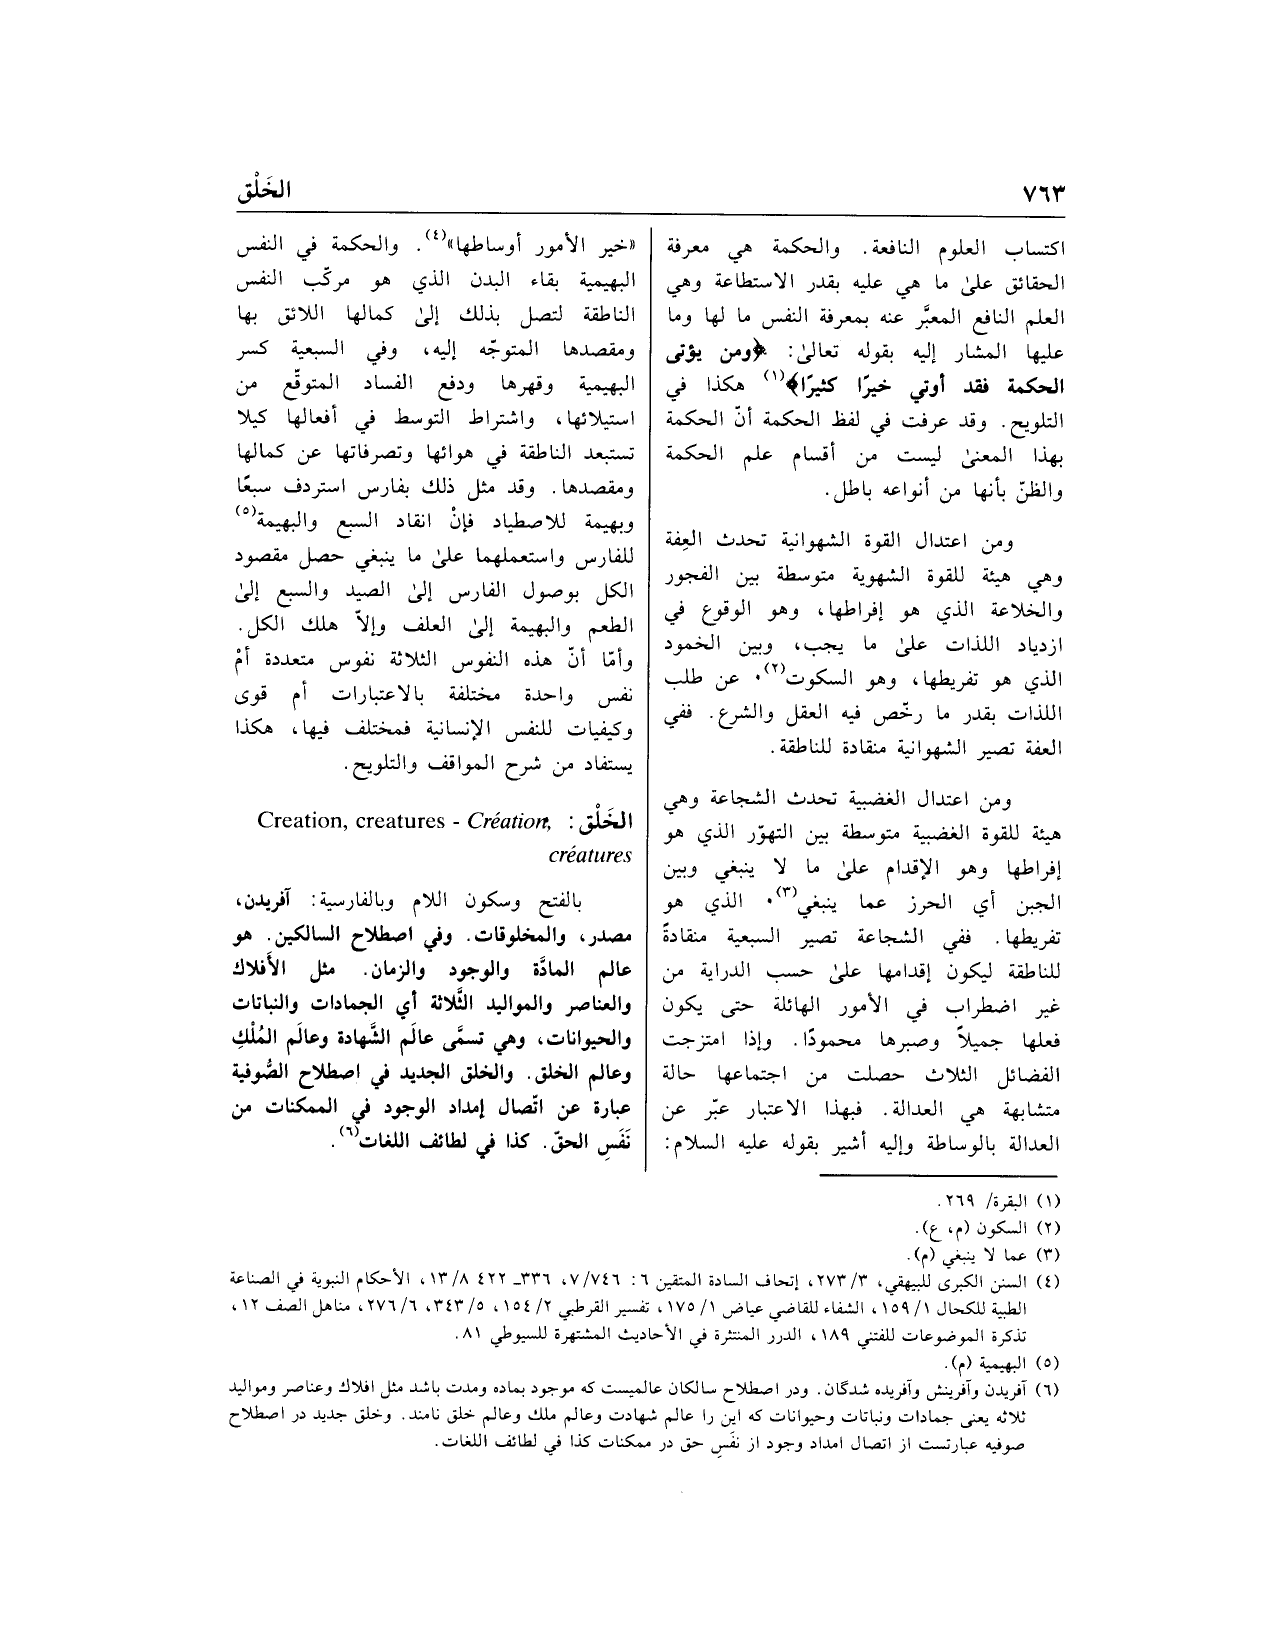 ٧٦٣
الخَلْق
اكتساب العلوم النافعة. والحكمة هي معرفة
الحقائق علىٰ ما هي عليه بقدر الاستطاعة وهي
العلم النافع المعبَّر عنه بمعرفة النفس ما لها وما
عليها المشار إليه بقوله تعالىٰ: ﴿ومن يؤتى
الحكمة فقد أوتي خيرًا كثيرًا﴾(١) هكذا في
التلويح. وقد عرفت في لفظ الحكمة أنّ الحكمة
بهذا المعنىٰ ليست من أقسام علم الحكمة
والظنّ بأنها من أنواعه باطل.
ومن اعتدال القوة الشهوانية تحدث العِفة
وهي هيئة للقوة الشهوية متوسطة بين الفجور
والخلاعة الذي هو إفراطها، وهو الوقوع في
ازدياد اللذات علىٰ ما يجب، وبين الخمود
الذي هو تفريطها، وهو السكوت(٢). عن طلب
اللذات بقدر ما رخّص فيه العقل والشرع. ففي
العفة تصير الشهوانية منقادة للناطقة.
ومن اعتدال الغضبية تحدث الشجاعة وهي
هيئة للقوة الغضبية متوسطة بين التهوّر الذي هو
إفراطها وهو الإقدام علىٰ ما لا ينبغي وبين
الجبن أي الحرز عما ينبغي(٣). الذي هو
تفريطها. ففي الشجاعة تصير السبعية منقادةً
للناطقة ليكون إقدامها علىٰ حسب الدراية من
غير اضطراب في الأمور الهائلة حتى يكون
فعلها جميلاً وصبرها محمودًا. وإذا امتزجت
الفضائل الثلاث حصلت من اجتماعها حالة
متشابهة هي العدالة. فبهذا الاعتبار عبّر عن
العدالة بالوساطة وإليه أشير بقوله عليه السلام:
«خير الأمور أوساطها»(٤). والحكمة في النفس
البهيمية بقاء البدن الذي هو مركّب النفس
الناطقة لتصل بذلك إلىٰ كمالها اللائق بها
ومقصدها المتوجّه إليه، وفي السبعية كسر
البهيمية وقهرها ودفع الفساد المتوقّع من
استيلائها، واشتراط التوسط في أفعالها كيلا
تستبعد الناطقة في هوائها وتصرفاتها عن كمالها
ومقصدها. وقد مثل ذلك بفارس استردف سبعًا
وبهيمة للاصطياد فإنْ انقاد السبع والبهيمة(٥)
للفارس واستعملهما علىٰ ما ينبغي حصل مقصود
الكل بوصول الفارس إلىٰ الصيد والسبع إلىٰ
الطعم والبهيمة إلىٰ العلف وإلاّ هلك الكل.
وأمّا أنّ هذه النفوس الثلاثة نفوس متعددة أمْ
نفس واحدة مختلفة بالاعتبارات أم قوى
وكيفيات للنفس الإنسانية فمختلف فيها، هكذا
يستفاد من شرح المواقف والتلويح.
الخَلْق: Creation, creatures - Création,
créatures
بالفتح وسكون اللام وبالفارسية: آفريدن،
مصدر، والمخلوقات. وفي اصطلاح السالكين. هو
عالم المادَّة والوجود والزمان. مثل الأفلاك
والعناصر والمواليد الثَّلاثة أي الجمادات والنباتات
والحيوانات، وهي تسمَّى عالَم الشَّهادة وعالَم المُلْكِ
وعالم الخلق. والخلق الجديد في اصطلاح الصُّوفية
عبارة عن اتّصال إمداد الوجود في الممكنات من
نَفَسِ الحقّ. كذا في لطائف اللغات(٦).
(١) البقرة/ ٢٦٩.
(٢) السكون (م، ع).
(٣) عما لا ينبغي (م).
(٤) السنن الكبرى للبيهقي، ٣/ ٢٧٣، إتحاف السادة المتقين ٦: ٧/٧٤٦، ٣٣٦ـ ٤٢٢ ٨/ ١٣، الأحكام النبوية في الصناعة
الطبية للكحال ١/ ١٥٩، الشفاء للقاضي عياض ١/ ١٧٥، تفسير القرطبي ٢/ ١٥٤، ٥/ ٣٤٣، ٦/ ٢٧٦، مناهل الصف ١٢،
تذكرة الموضوعات للفتني ١٨٩، الدرر المنتثرة في الأحاديث المشتهرة للسيوطي ٨١.
(٥) البهيمية (م).
(٦) آفريدن وآفرينش وآفريده شدگان. ودر اصطلاح سالكان عالميست كه موجود بماده ومدت باشد مثل افلاك وعناصر ومواليد
ثلاثه يعنى جمادات ونباتات وحيوانات كه اين را عالم شهادت وعالم ملك وعالم خلق نامند. وخلق جديد در اصطلاح
صوفيه عبارتست از اتصال امداد وجود از نفَسِ حق در ممكنات كذا في لطائف اللغات.